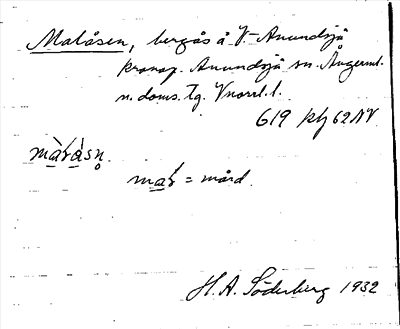 Malåsen, bergås å V. Anundsjö
kronop. Anundsjö sn. Ångerml.
n. doms. tg. Vnorrl. l.
619 Kbl 62 NV
màɽásn̥.
maɽ = mård.
H. A. Söderberg 1932